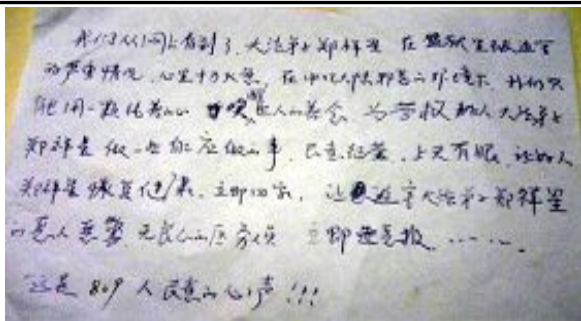 我们从网上看到了，大法弟子郑祥星 在 监狱里被迫害
的严重情况，心里十分大急，在中共大陆邪恶的环境下，我们只
能用一颗他善的心 唤 世人的善念，为营救 好人大法弟子
郑祥星 做一些自己应做的事，民意征签，上天有眼，让好人
郑祥星 恢复健康，立即回家，让迫害大法弟子郑祥星
的恶人恶警 无良心的医务人员 立即遭恶报……
这是 809 人民意的心声!!!